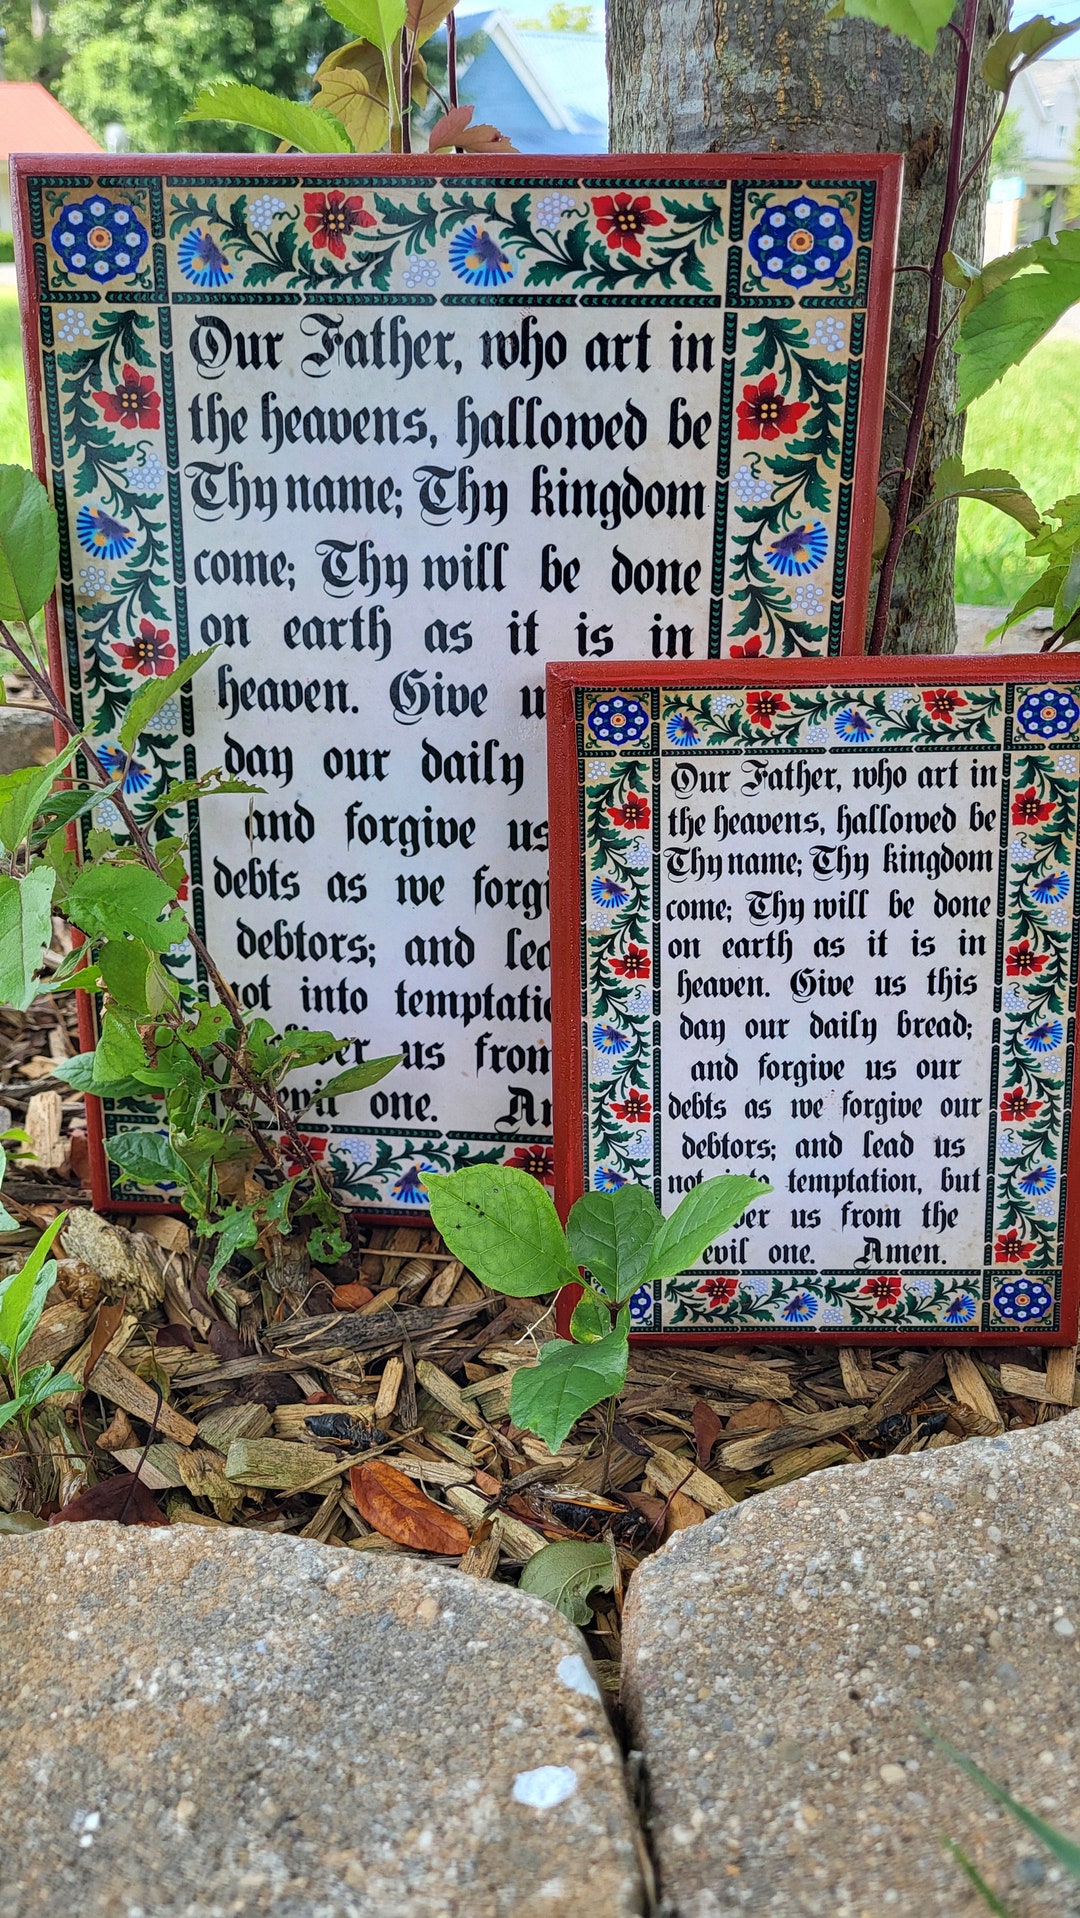 Our Father, who art in
the heavens, hallowed be
Thy name; Thy kingdom
come; Thy will be done
on earth as it is in
heaven. Give
day our daily
and forgive us
debts as we
debtors; and
into
us from
evil one.
Our Father, who art in
the heavens, hallowed be
Thy name; Thy kingdom
come; Thy will be done
on earth as it is in
heaven. Give us this
day our daily bread;
and forgive us our
debts as we forgive our
debtors; and lead us
not into temptation, but
us from the
evil one. Amen.